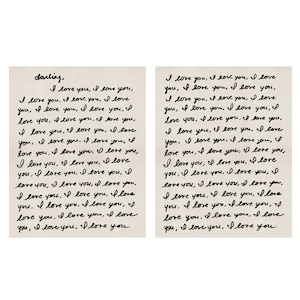 darling,
I love you, I love you,
I love you, I love you, I love
you, I love you, I love you,
I love you, I love you, I love you,
you, I love you, I love you, I love
you, I love you, I love you, I
love you, I love you, I love you,
I love you, I love you, I love
you, I love you, I love you, I
love you, I love you, I love
you, I love you, I love you,
I love you, I love you, I love
you, I love you, I love you, I
love you, I love you, I love you
I love you, I love you, I love you,
I love you, I love you, I love
you, I love you, I love you, I
love you, I love you, I love you,
I love you, I love you, I love
you, I love you, I love you, I love
you, I love you, I love you, I
love you, I love you, I love you,
I love you, I love you, I love
you, I love you, I love you, I love
you, I love you, I love you, I
love you, I love you, I love you